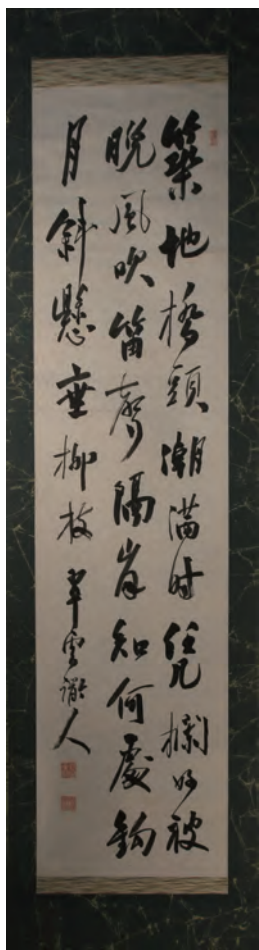 築地橋頭潮満時凭欄好被
晩風吹笛聲隔岸知何處鉤
月斜懸垂柳枝 翠雲人